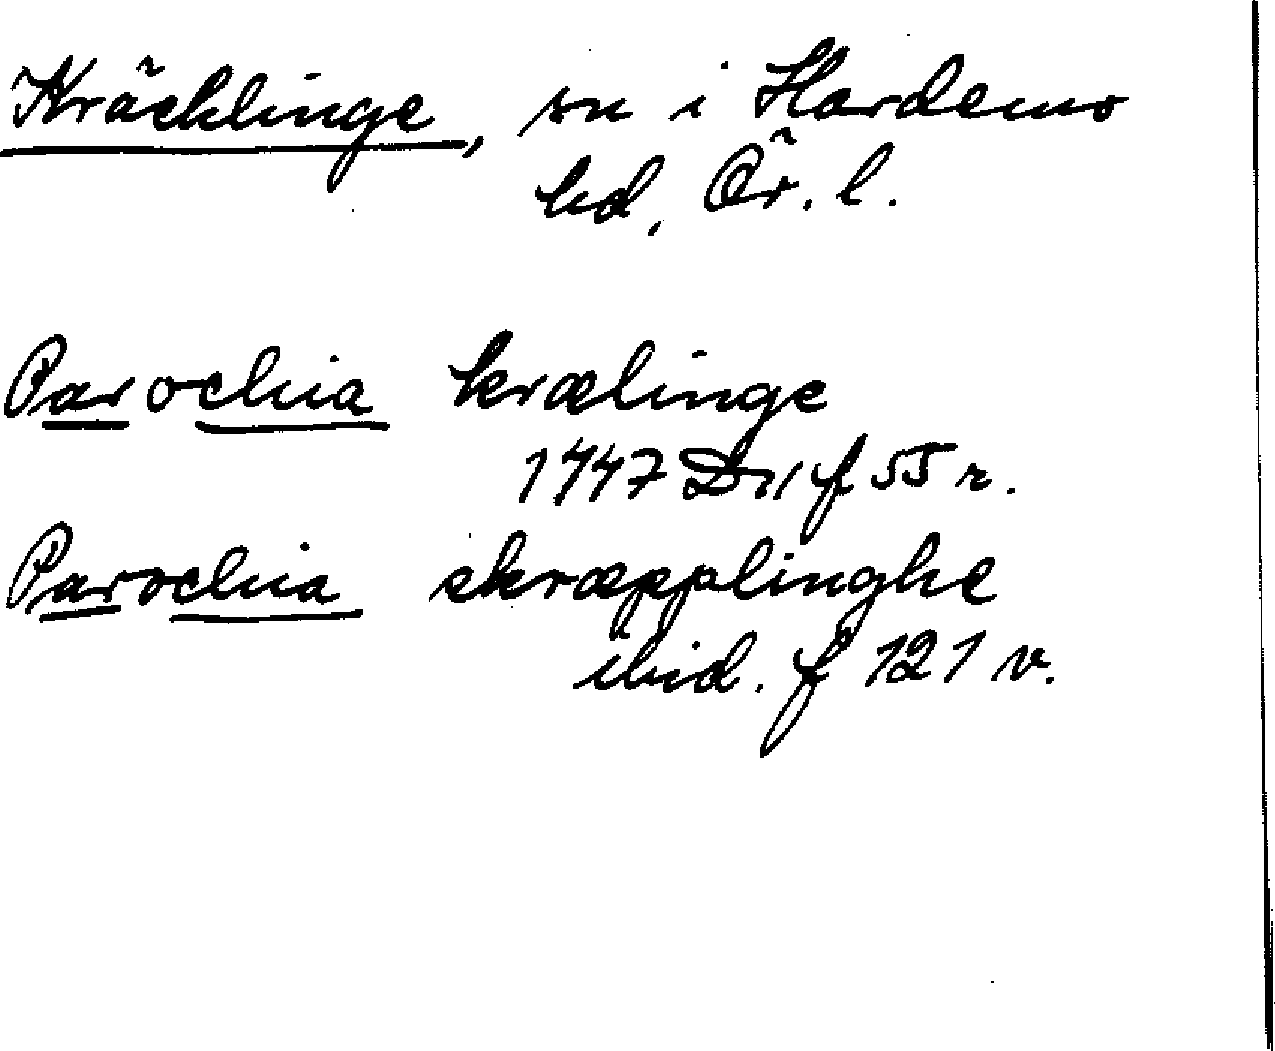 Kräcklinge, sn i Hardemo
hd, Ör. l.
Parochia krælinge
1447 D11 f 55 r.
Parochia skræpplinghe
ibid. f 121 v.